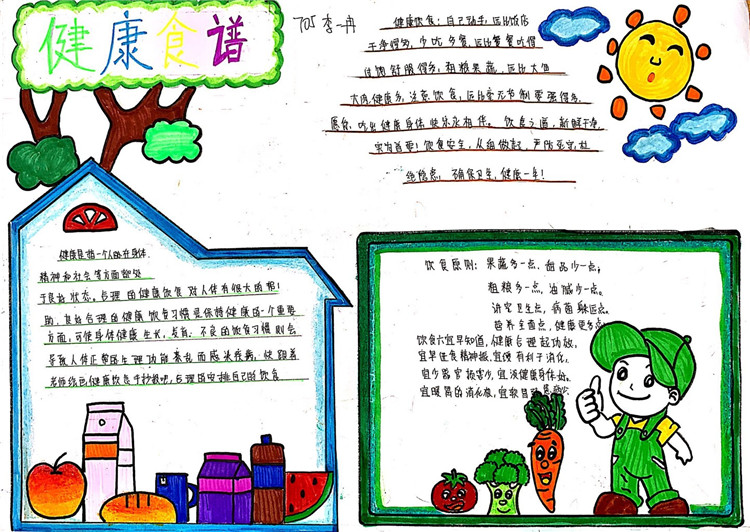 健康食谱
705 李一冉
健康饮食：自己动手，远比饭店
干净得多，少吃多餐，远比餐餐吃得
过饱舒服得多，粗粮果蔬，远比大鱼
大肉健康多，注意饮食，远比毫无节制更强得多．
愿你，吃出健康身体快乐永相伴。饮食之道，新鲜干净，
实为首要！饮食安全，从自做起，严防死守，杜
绝隐患，确保卫生，健康一生！
健康是指一个人的在身体．
精神和社会等方面都处
于良好状态。合理的健康饮食对人体有很大的帮
助，良好合理的健康饮食习惯是保持健康的一个重要
方面，可使身体健康生长，发育．不良的饮食习惯则会
导致人体正常的生理功能紊乱而感染疾病，快跟着
老师给的健康饮食手抄报吧，合理的安排自己的饮食
饮食原则：果蔬多一点，甜品少一点。
粗粮多一点，油腻少一点。
讲究卫生点，病菌躲远点。
营养全面点，健康更多点
饮食六宜早知道，健康合理起功效，
宜早进食精神振，宜慢有利于消化，
宜少器官损害少，宜淡健康身体好。
宜暖胃的消化易，宜软